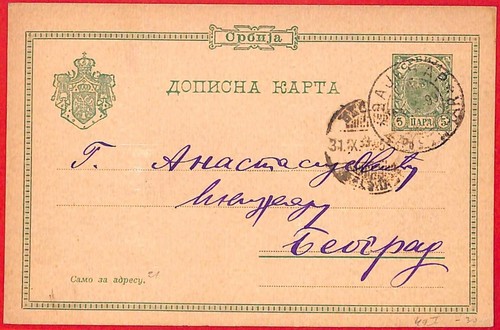 Србија
ДОПИСНА КАРТА
5 ПАРА 5
Г. Анастасијевић
Београд
Само за адресу.